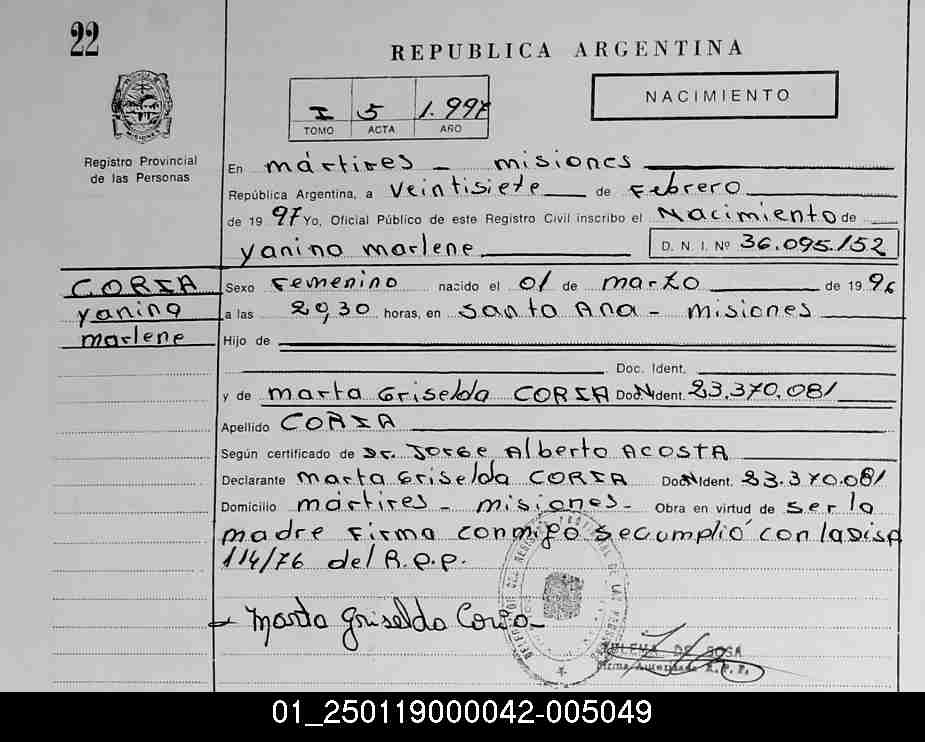 22
REPUBLICA ARGENTINA
I 5 1.997
TOMO ACTA AÑO
NACIMIENTO
Registro Provincial
de las Personas
En mártires - misiones
República Argentina, a veintisiete de Febrero
de 1997 Yo, Oficial Público de este Registro Civil inscribo el Nacimiento de
yanina marlene D. N. I. Nº 36.095.152
CORIA
yanina
marlene
Sexo Femenino nacido el 01 de marzo de 1996
a las 2930 horas, en Santa Ana - misiones
Hijo de
Doc. Ident.
y de marta Griselda CORIA Doc. Ident. 23.370.081
Apellido CORIA
Según certificado de Dr. Jorge Alberto ACOSTA
Declarante marta Griselda CORIA Doc. Ident. 23.370.081
Domicilio mártires - misiones - Obra en virtud de ser la
madre Firma conmigo se cumplió con la Disp
114/76 del R.P.P.
Marta Griselda Coria
ZULEMA DE SOSA
01_250119000042-005049